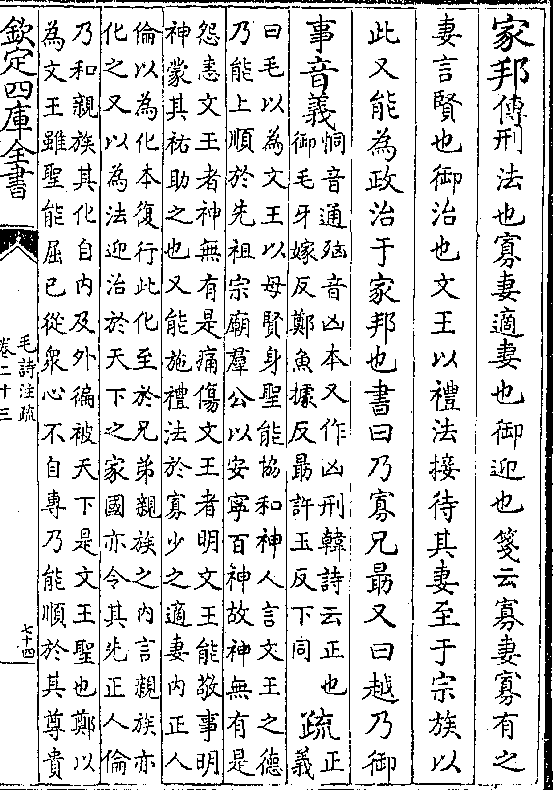 家邦傳刑法也寡妻適妻也御迎也箋云寡妻寡有之
妻言賢也御治也文王以禮法接待其妻至于宗族以
此又能為政治于家邦也書曰乃寡兄勗又曰越乃御
事音義
恫音通殈音凶本又作凶刑韓詩云正也
御毛牙嫁反鄭魚據反勗許玉反下同
疏
正
義
曰毛以為文王以母賢身聖能協和神人言文王之德
乃能上順於先祖宗廟羣公以安寧百神故神無有是
怨恚文王者神無有是痛傷文王者明文王能敬事明
神蒙其祐助之也又能施禮法於寡少之適妻内正人
倫以為化本復行此化至於兄弟親族之内言親族亦
化之又以為法迎治於天下之家國亦令其先正人倫
乃和親族其化自内及外徧被天下是文王聖也鄭以
為文王雖聖能屈已從衆心不自專乃能順於其尊貴
欽定四庫全書
毛詩注疏
卷二十三
七十四